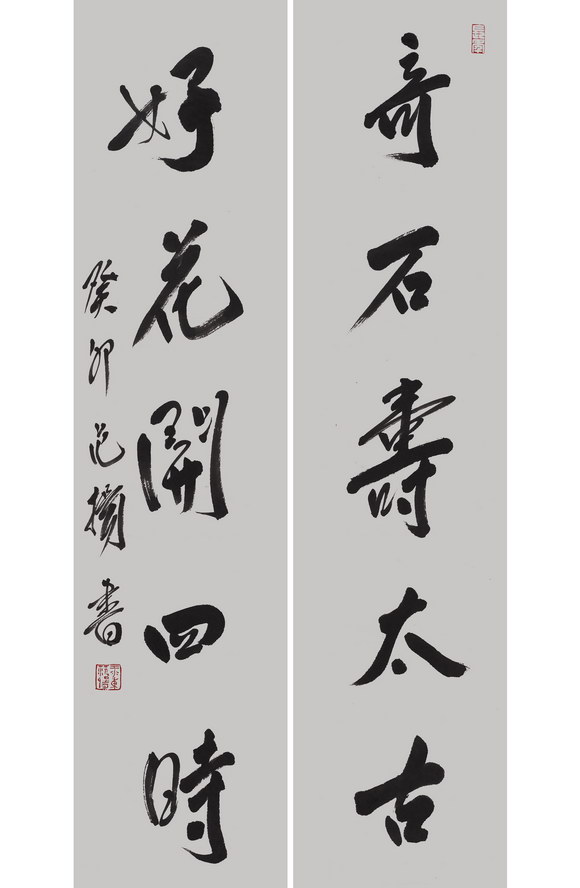 奇石壽太古
好花開四時
癸卯 范 書